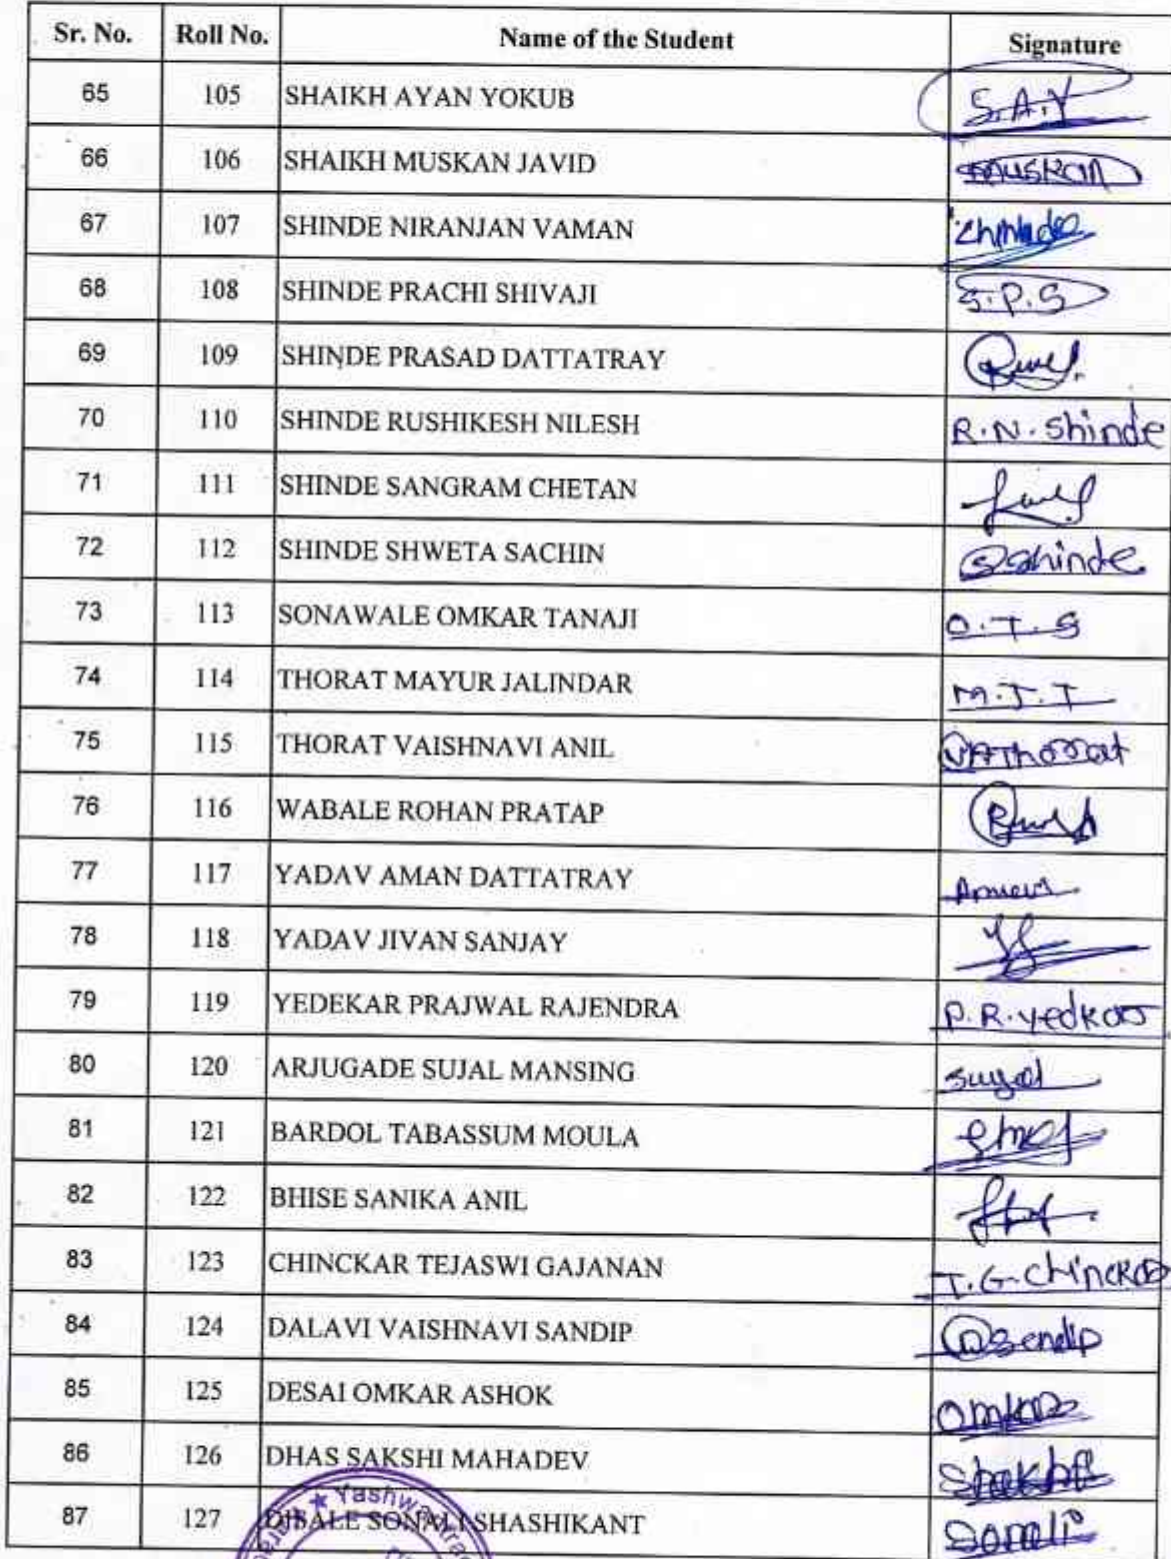 Sr. No. Roll No. Name of the Student Signature
65 105 SHAIKH AYAN YOKUB S.A.Y
66 106 SHAIKH MUSKAN JAVID Muskan
67 107 SHINDE NIRANJAN VAMAN
68 108 SHINDE PRACHI SHIVAJI S.P.S
69 109 SHINDE PRASAD DATTATRAY
70 110 SHINDE RUSHIKESH NILESH R.N.Shinde
71 111 SHINDE SANGRAM CHETAN
72 112 SHINDE SHWETA SACHIN SShinde
73 113 SONAWALE OMKAR TANAJI O.T.S
74 114 THORAT MAYUR JALINDAR M.J.T
75 115 THORAT VAISHNAVI ANIL VAThorat
76 116 WABALE ROHAN PRATAP
77 117 YADAV AMAN DATTATRAY
78 118 YADAV JIVAN SANJAY
79 119 YEDEKAR PRAJWAL RAJENDRA P.R.yedkar
80 120 ARJUGADE SUJAL MANSING Sujal
81 121 BARDOL TABASSUM MOULA
82 122 BHISE SANIKA ANIL
83 123 CHINCKAR TEJASWI GAJANAN T.G.Chinckar
84 124 DALAVI VAISHNAVI SANDIP
85 125 DESAI OMKAR ASHOK Omkar
86 126 DHAS SAKSHI MAHADEV
87 127 DISALE SONALI SHASHIKANT Sonali